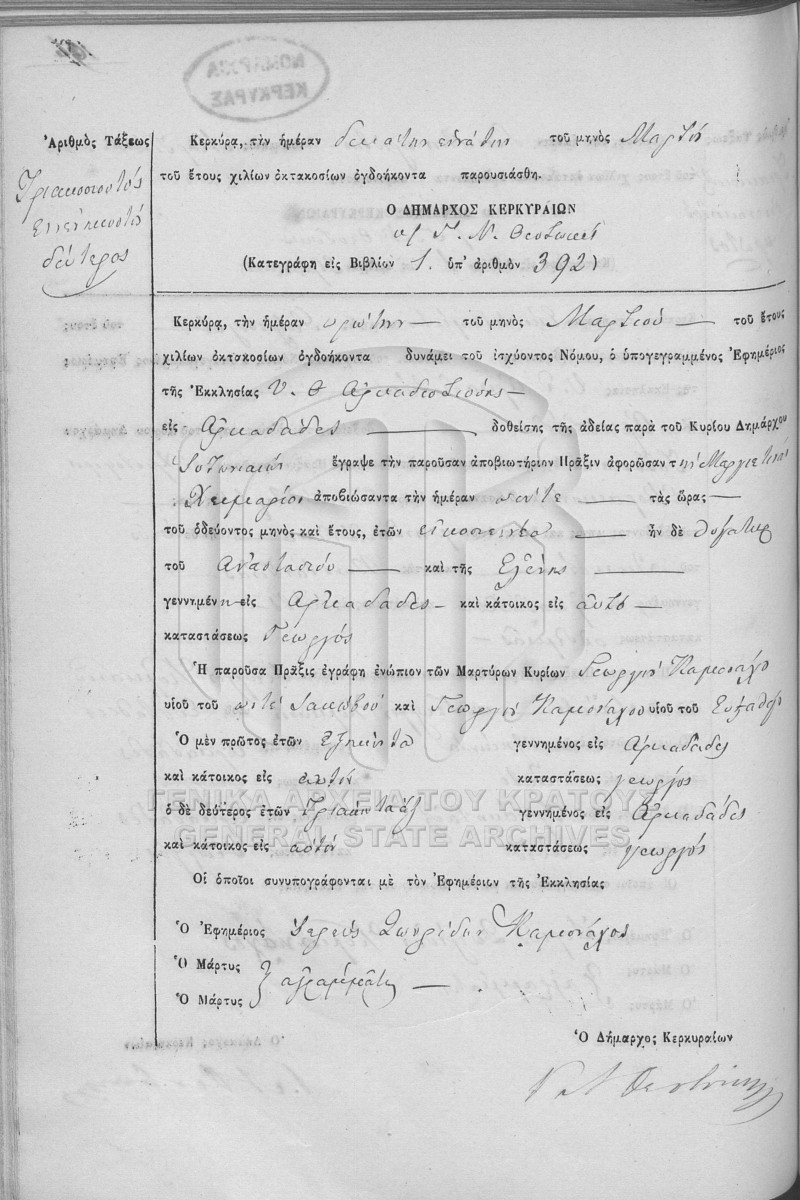 ΝΟΜΑΡΧΙΑ
ΚΕΡΚΥΡΑΣ
Ἀριθμὸς Τάξεως
Τριακοσιοστός
ἐνενηκοστός
δεύτερος
Κερκύρᾳ, τὴν ἡμέραν δεκάτην ἐννάτην τοῦ μηνὸς Μαρτίου
τοῦ ἔτους χιλίων ὀκτακοσίων ὀγδοήκοντα παρουσιάσθη.
Ο ΔΗΜΑΡΧΟΣ ΚΕΡΚΥΡΑΙΩΝ
Γ. Ν. Θεοτόκης
(Κατεγράφη εἰς Βιβλίον 1. ὑπ' ἀριθμὸν 392)
Κερκύρᾳ, τὴν ἡμέραν πρώτην τοῦ μηνὸς Μαρτίου τοῦ ἔτους
χιλίων ὀκτακοσίων ὀγδοήκοντα δυνάμει τοῦ ἰσχύοντος Νόμου, ὁ ὑπογεγραμμένος Ἐφημέριος
τῆς Ἐκκλησίας Υ. Θ
εἰς Αρκαδάδες δοθείσης τῆς ἀδείας παρὰ τοῦ Κυρίου Δημάρχου
ἔγραψε τὴν παροῦσαν ἀποβιωτήριον Πρᾶξιν ἀφορῶσαν τ
ἀποβιώσαντα τὴν ἡμέραν πέντε τὰς ὥρας
τοῦ ὁδεύοντος μηνὸς καὶ ἔτους, ἐτῶν ἦν δὲ θυγάτηρ
τοῦ Αναστασίου καὶ τῆς Ελένης
γεννημένη εἰς Αρκαδάδες καὶ κάτοικος εἰς αυτό
καταστάσεως Γεωργός
Ἡ παροῦσα Πρᾶξις ἐγράφη ἐνώπιον τῶν Μαρτύρων Κυρίων Γεωργίου Καμονάχο
υἱοῦ τοῦ ποτέ Ιακώβου καὶ Γεωργίου Καμονάχου υἱοῦ τοῦ
Ὁ μὲν πρῶτος ἐτῶν εξήκοντα γεννημένος εἰς Αρκαδάδες
καὶ κάτοικος εἰς αυτό καταστάσεως γεωργός
ὁ δὲ δεύτερος ἐτῶν Τριάκοντα γεννημένος εἰς Αρκαδάδες
καὶ κάτοικος εἰς αυτό καταστάσεως γεωργός
Οἱ ὁποῖοι συνυπογράφονται μὲ τὸν Ἐφημέριον τῆς Ἐκκλησίας
Ὁ Ἐφημέριος Ιερεύς Σπυρίδων Καμονάχος
Ὁ Μάρτυς
αγράμματοι
Ὁ Μάρτυς
Ὁ Δήμαρχος Κερκυραίων
ΓΕΝΙΚΑ ΑΡΧΕΙΑ ΤΟΥ ΚΡΑΤΟΥΣ
GENERAL STATE ARCHIVES